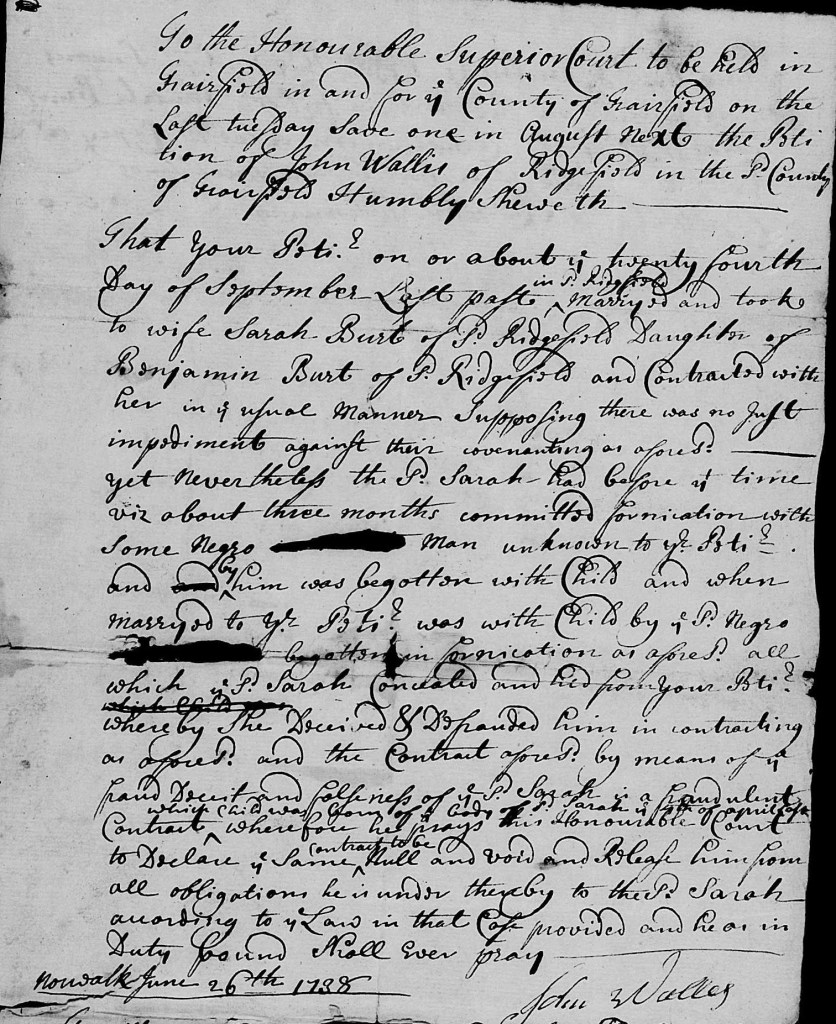 To the Honourable Superior Court to be held in
Fairfield in and for ye County of Fairfield on the
Last tuesday Save one in August Next the Peti
tion of John Wallis of Ridgefield in the Sd. County
of Fairfield Humbly Sheweth
That Your Petir. on or about ye twenty fourth
Day of September Last past ^ in Sd. Ridgefield Marryed and tooke
to wife Sarah Burt of Sd. Ridgefield Daughter of
Benjamin Burt of Sd. Ridgefield and Contracted with
her in ye usual Manner Supposing there was no Just
impediment against their covenanting as aforesd.
yet Nevertheless the Sd. Sarah had before ye time
viz about three months committed fornication with
Some Negro Man unknown to yr. Petir.
and and ^ by him was begotten with Child and when
marryed to yr. Petir. was with Child by ye Sd. Negro
begotten in fornication as aforesd. all
which ye Sd. Sarah Concealed and hid from your Petir.
which Child
whereby She Deceived & Defrauded him in contracting
as aforesd. and the Contract aforesd. by means of ye
fraud Deceit and falseness of ye Sd. Sarah is a fraudulent
which Child was born of ye Body of Sd. Sarah ye of april last
Contract ^ wherefore he prays this Honourable Court
to Declare ye Same ^ contract to be Null and void and Release him from
all obligations he is under thereby to the Sd. Sarah
according to ye Law in that Case provided and he as in
Duty bound Shall Ever pray
Norwalk June 26th 1738
John Walles